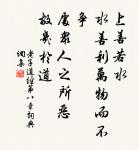 上善若水
水善利萬物而不
爭
處衆人之所惡
故幾於道
老子道經第八章詞典
網集